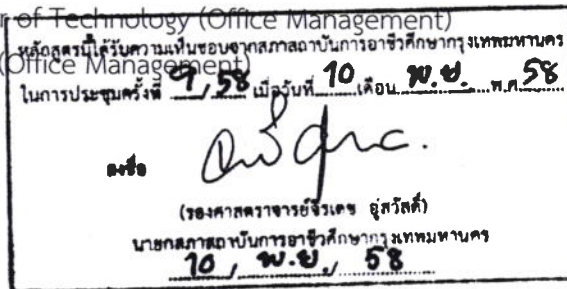 r of Technology (Office Management)
หลักสูตรนี้ได้รับความเห็นชอบจากสภาสถาบันการอาชีวศึกษากรุงเทพมหานคร
(Office Management)
ในการประชุมครั้งที่ 9/58 เมื่อวันที่ 10 เดือน พ.ย. พ.ศ. 58
ลงชื่อ
(รองศาสตราจารย์จิรเดช อู่สวัสดิ์)
นายกสภาสถาบันการอาชีวศึกษากรุงเทพมหานคร
10 / พ.ย. / 58